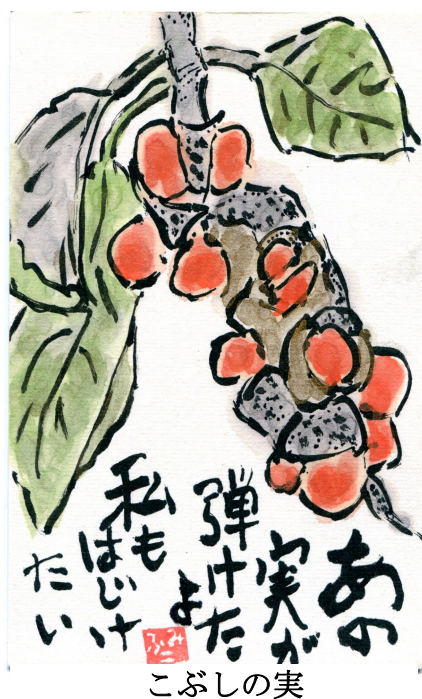 あの
実が
弾けた
よ
私も
はじけ
たい
ふみこ
こぶしの実